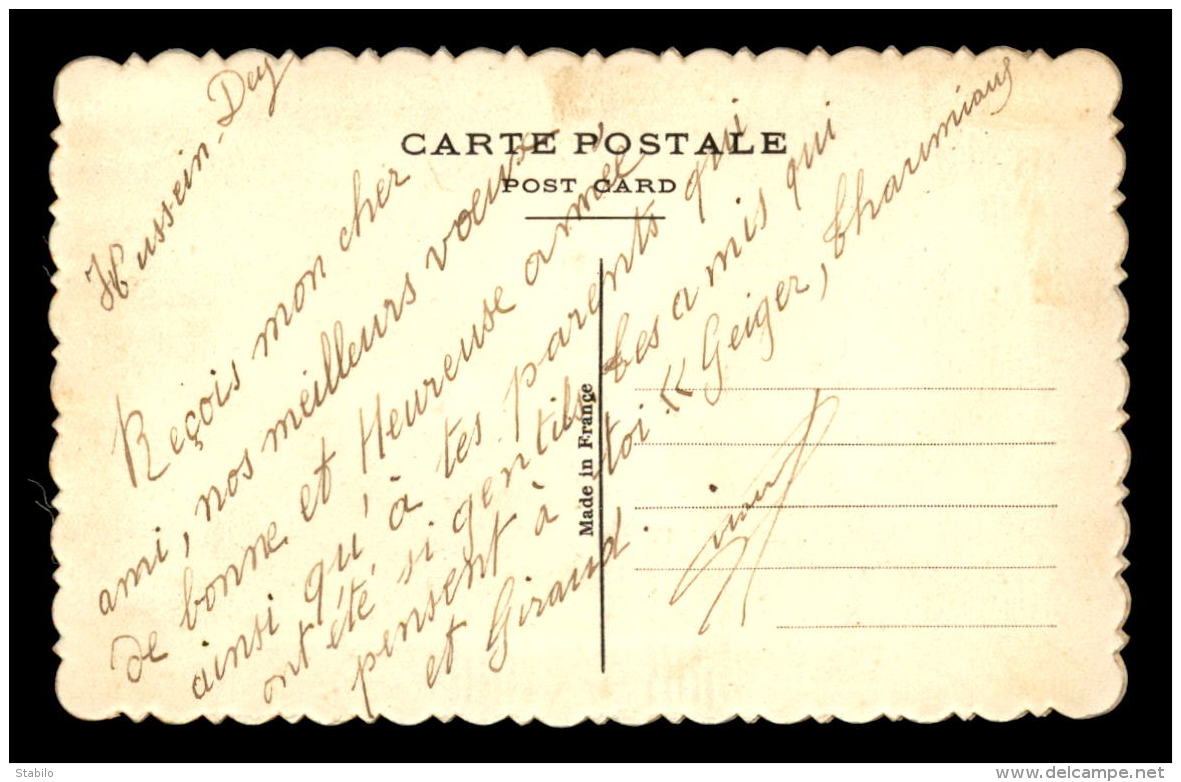 CARTE POSTALE
POST CARD
Made in France
Hussein-Dey
Reçois mon cher
ami, nos meilleurs voeux
de bonne et Heureuse année
ainsi qu'à tes parents qui
ont été si gentils. Les amis qui
pensent à toi. « Geiger,
et Giraud.
Stabilo
delcampe.net